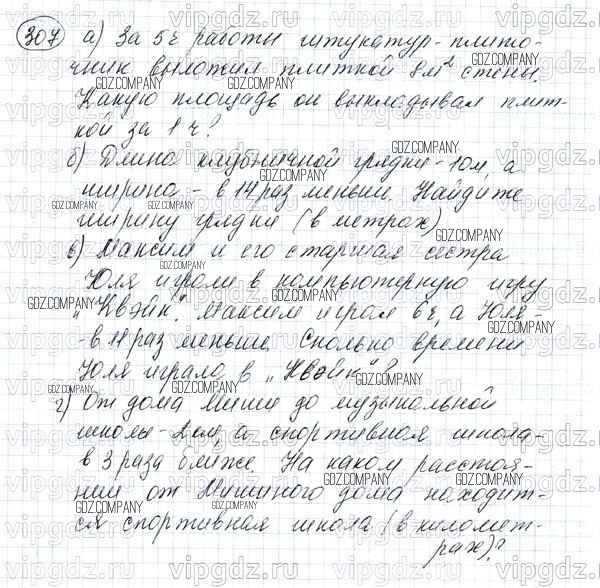 307 а) За 5 ч работы штукатур-плиточ-
чник выложил плиткой 8 м² стены.
Какую площадь он выкладывал плит-
кой за 1 ч?
б) Длина клубничной грядки - 10м, а
ширина - в 14 раз меньше. Найдите
ширину грядки (в метрах)
в) Максим и его старшая сестра
Юля играли в компьютерную игру
"Квэйк". Максим играл 6 ч, а Юля -
- в 11 раз меньше. Сколько времени
Юля играла в "Квэйк"?
г) От дома Миши до музыкальной
школы - 2 км, а спортивная школа -
в 3 раза ближе. На каком расстоя-
нии от Мишиного дома находит-
ся спортивная школа (в километ-
рах)?